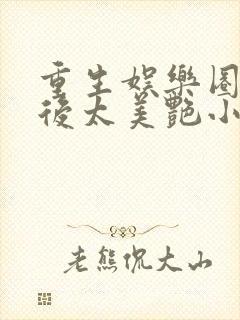 重生娛樂圈
後太美艷小
老熊侃大山